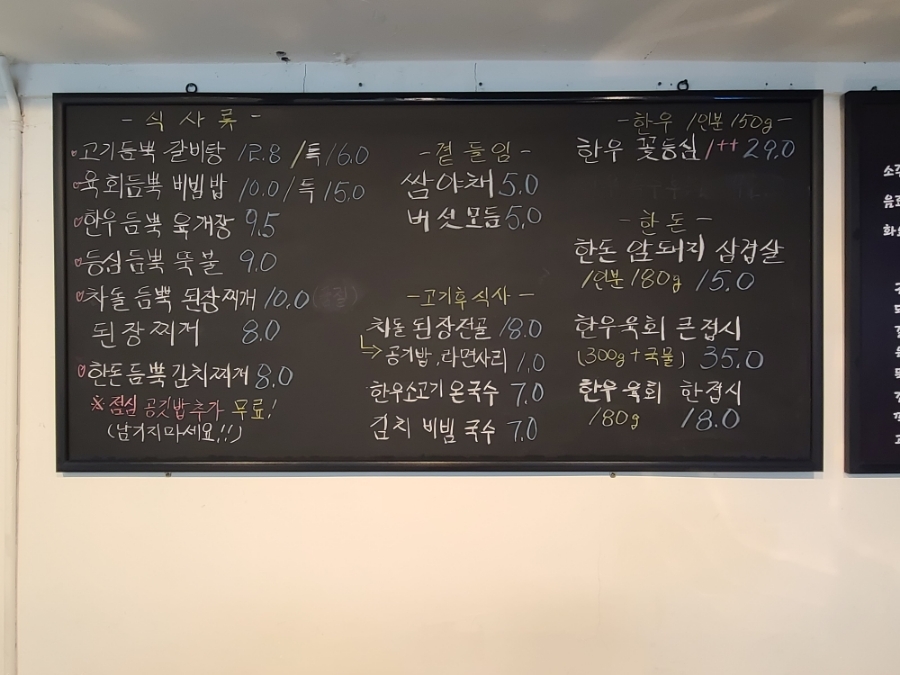 - 식사류 -
고기듬뿍 갈비탕 12.8 / 특 16.0
육회듬뿍 비빔밥 10.0 / 특 15.0
한우듬뿍 육개장 9.5
등심듬뿍 뚝불 9.0
차돌듬뿍 된장찌개 10.0
된장찌개 8.0
한돈듬뿍 김치찌개 8.0
※ 점심 공깃밥추가 무료!
(남기지마세요!!)
- 곁들임 -
쌈야채 5.0
버섯모듬 5.0
- 고기후식사 -
차돌된장전골 18.0
공기밥, 라면사리 1.0
한우소고기 온국수 7.0
김치 비빔 국수 7.0
- 한우 1인분 150g -
한우 꽃등심 1++ 29.0
- 한돈 -
한돈 암돼지 삼겹살
1인분 180g 15.0
한우육회 큰접시
(300g + 국물) 35.0
한우 육회 한접시
180g 18.0
소주
음료
화요